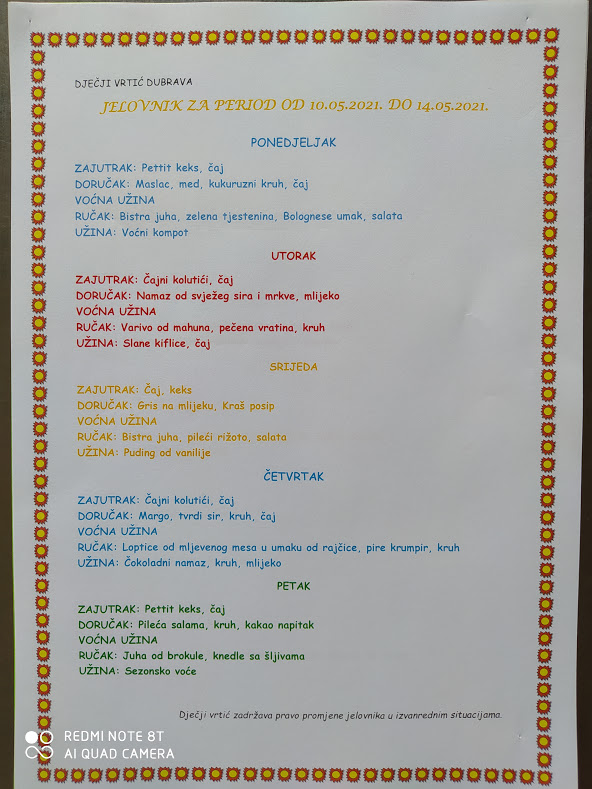 DJEČJI VRTIĆ DUBRAVA
JELOVNIK ZA PERIOD OD 10.05.2021. DO 14.05.2021.
PONEDJELJAK
ZAJUTRAK: Pettit keks, čaj
DORUČAK: Maslac, med, kukuruzni kruh, čaj
VOĆNA UŽINA
RUČAK: Bistra juha, zelena tjestenina, Bolognese umak, salata
UŽINA: Voćni kompot
UTORAK
ZAJUTRAK: Čajni kolutići, čaj
DORUČAK: Namaz od svježeg sira i mrkve, mlijeko
VOĆNA UŽINA
RUČAK: Varivo od mahuna, pečena vratina, kruh
UŽINA: Slane kiflice, čaj
SRIJEDA
ZAJUTRAK: Čaj, keks
DORUČAK: Gris na mlijeku, Kraš posip
VOĆNA UŽINA
RUČAK: Bistra juha, pileći rižoto, salata
UŽINA: Puding od vanilije
ČETVRTAK
ZAJUTRAK: Čajni kolutići, čaj
DORUČAK: Margo, tvrdi sir, kruh, čaj
VOĆNA UŽINA
RUČAK: Loptice od mljevenog mesa u umaku od rajčice, pire krumpir, kruh
UŽINA: Čokoladni namaz, kruh, mlijeko
PETAK
ZAJUTRAK: Pettit keks, čaj
DORUČAK: Pileća salama, kruh, kakao napitak
VOĆNA UŽINA
RUČAK: Juha od brokule, knedle sa šljivama
UŽINA: Sezonsko voće
Dječji vrtić zadržava pravo promjene jelovnika u izvanrednim situacijama.
REDMI NOTE 8T
AI QUAD CAMERA